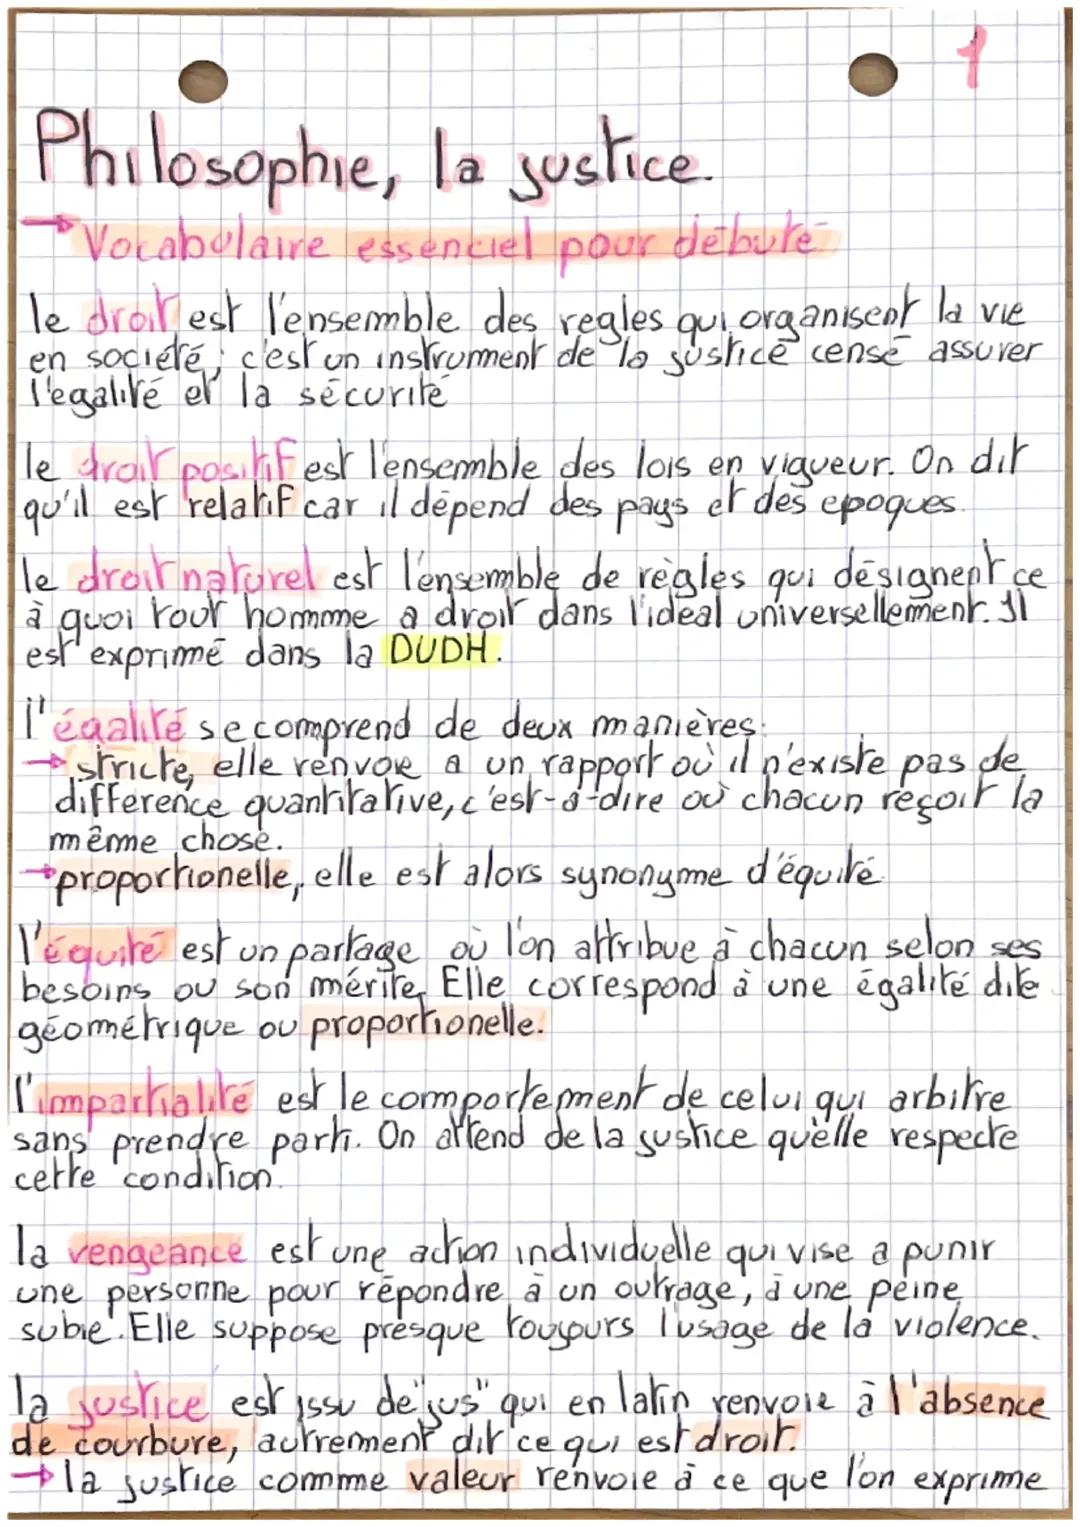 1
Philosophie, la justice.
→ Vocabulaire essenciel pour débuté
le droit est l'ensemble des regles qui organisent la vie
en société ; c'est un instrument de la justice censé assurer
l'egalité et la sécurité
le droit positif est l'ensemble des lois en vigueur. On dit
qu'il est relatif car il dépend des pays et des epoques.
le droit naturel est l'ensemble de règles qui désignent ce
à quoi tout homme a droit dans l'ideal universellement. Il
est exprimé dans la DUDH.
l'égalité se comprend de deux manières:
→ stricte, elle renvoie a un rapport où il n'existe pas de
difference quantitative, c'est-à-dire où chacun reçoit la
même chose.
→ proportionelle, elle est alors synonyme d'équité
l'équité est un partage où l'on attribue à chacun selon ses
besoins ou son mérite. Elle correspond à une égalité dite
géométrique ou proportionelle.
l'impartialité est le comportement de celui qui arbitre
sans prendre parti. On attend de la justice qu'elle respecte
cette condition.
la vengeance est une action individuelle qui vise a punir
une personne pour répondre à un outrage, à une peine
subie. Elle suppose presque toujours l'usage de la violence.
la justice est issu de "jus" qui en latin renvoie à l'absence
de courbure, autrement dit ce qui est droit.
→ la justice comme valeur renvoie à ce que l'on exprime